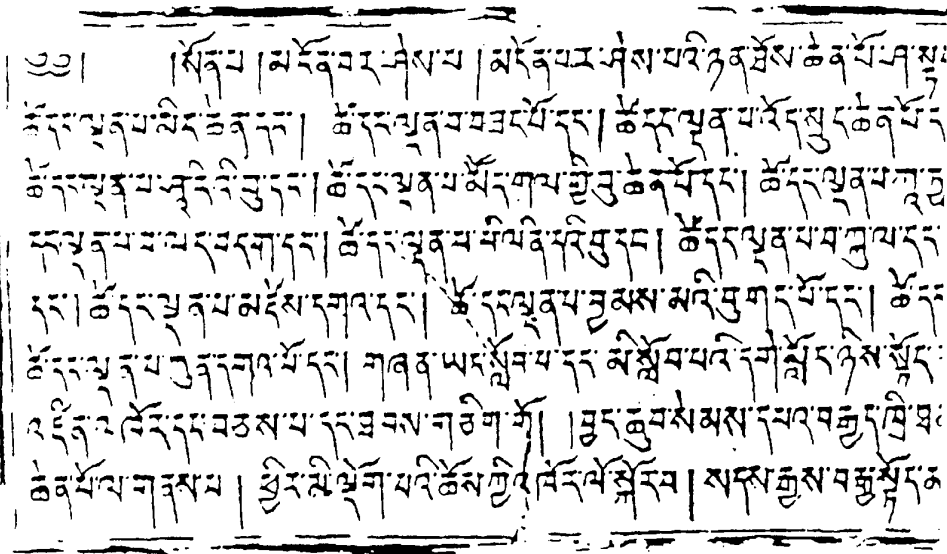 ༄༅། །སོན་པ །མངོན་པར་ཤེས་པ །མངོན་པར་ཤེས་པའི་ཉན་ཐོས་ཆེན་པོ་ཤ
ཚེ་དང་ལྡན་པ་མིང་ཆེན་དང་། ཚེ་དང་ལྡན་པ་བཟང་པོ་དང་། ཚེ་དང་ལྡན་པ་འོད་སྲུང་ཆེན་པོ་ད
ཚེ་དང་ལྡན་པ་ཤཱ་རིའི་བུ་དང་། ཚེ་དང་ལྡན་པ་མོང་གལ་གྱི་བུ་ཆེན་པོ་དང་། ཚེ་དང་ལྡན་པ་
དང་ལྡན་པ་བ་ལང་བདག་དང་། ཚེ་དང་ལྡན་པ་པི་ལིན་དའི་བུ་དང་། ཚེ་དང་ལྡན་པ་བ་ཀུ་ལ་དང་
དང་། ཚེ་དང་ལྡན་པ་མཛེས་དགའ་དང་། ཚེ་དང་ལྡན་པ་བྱམས་མའི་བུ་གང་པོ་དང་། ཚེ་ད
ཚེ་དང་ལྡན་པ་ཀུན་དགའ་པོ་དང་། གཞན་ཡང་སློབ་པ་དང་ མི་སློབ་པའི་དགེ་སློང་ཉིས་སྟོང་
འཛིན་འཁོར་དང་བཅས་པ་དང་ཐབས་གཅིག་གོ། །བྱང་ཆུབ་སེམས་དཔའ་བརྒྱད་ཁྲི་ཐ
ཆེན་པོ་ལ་གནས་པ། ཕྱིར་མི་ལྡོག་པའི་ཆོས་ཀྱི་འཁོར་ལོ་སྐོར་བ། སངས་རྒྱས་བརྒྱ་སྟོང་